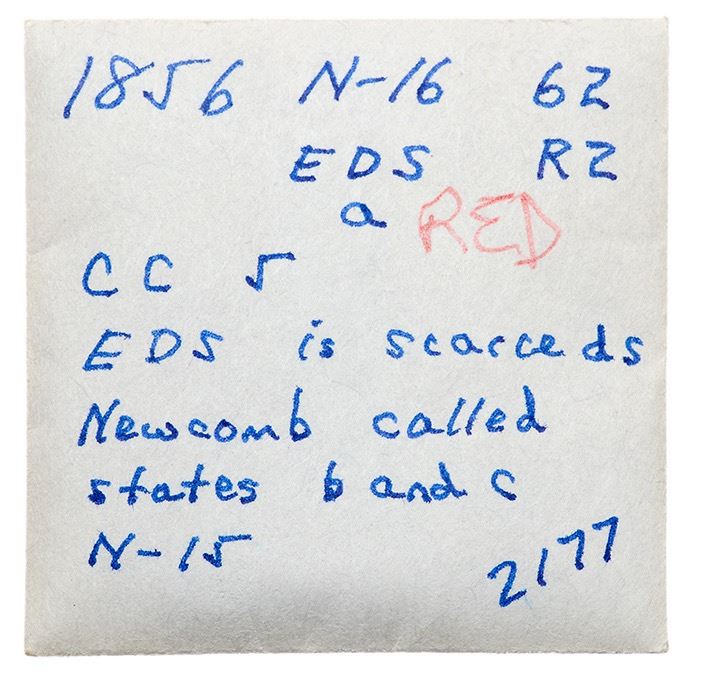 1856 N-16 62
EDS R2
a RED
CC 5
EDS is scarce ds
Newcomb called
states b and c
N-15
2177